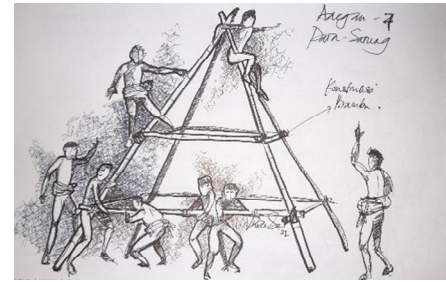 Adegan - 7
Para - Sarung
Konstruksi
Bambu.